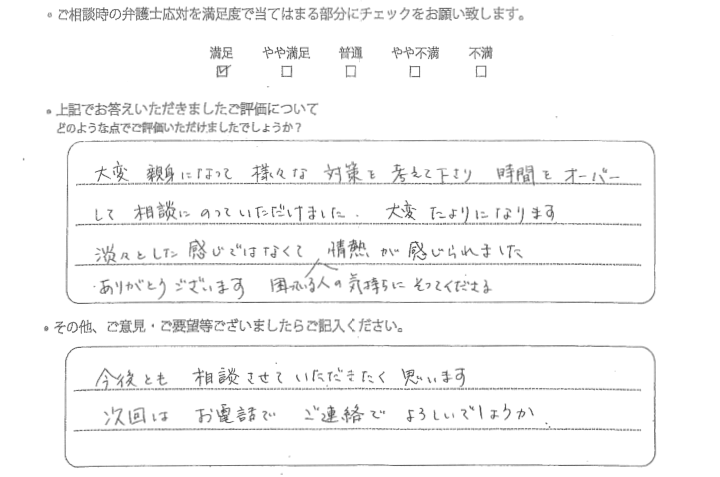 • ご相談時の弁護士応対を満足度で当てはまる部分にチェックをお願い致します。
満足 やや満足 普通 やや不満 不満
☑ □ □ □ □
• 上記でお答えいただきましたご評価について
どのような点でご評価いただけましたでしょうか?
大変 親身になって 様々な 対策を 考えて下さり 時間を オーバー
して 相談に のっていただけました. 大変 たよりになります
淡々とした 感じではなくて 情熱が 感じられました
ありがとうございます 困っている人の気持ちに そってくださる
• その他、ご意見・ご要望等ございましたらご記入ください。
今後とも 相談させていただきたく 思います
次回は お電話で ご連絡で よろしいでしょうか